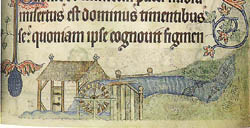 misertus est dominus timentibus
se: quoniam ipse cognouit figmen